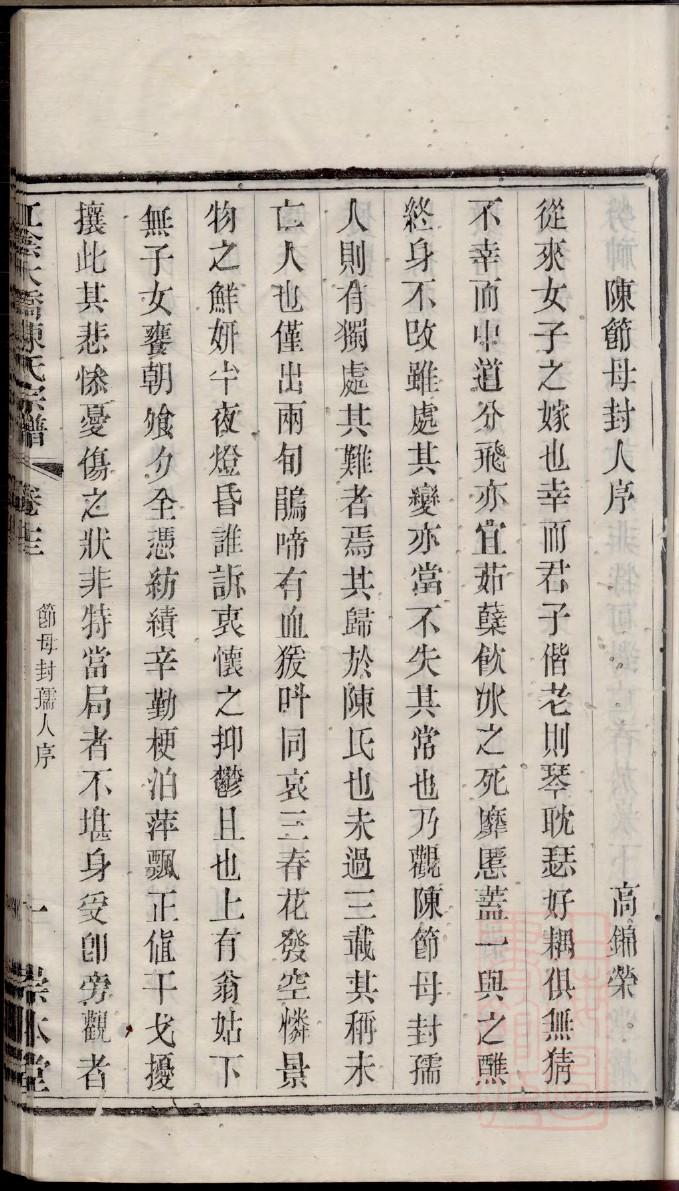 陳節母封人序 高錦榮
從來女子之嫁也幸而君子偕老則琴耽瑟好耦俱無猜
不幸而中道分飛亦宜茹蘖飲冰之死靡慝蓋一與之醮
終身不改雖處其變亦當不失其常也乃觀陳節母封孺
人則有獨處其難者焉其歸於陳氏也未過三載其稱未
亡人也僅出兩旬鵑啼有血猨呌同哀三春花發空憐景
物之鮮妍半夜燈昏誰訴衷懷之抑鬱且也上有翁姑下
無子女饔朝飧夕全憑紡績辛勤梗泊萍飄正値干戈擾
攘此其悲慘憂傷之狀非特當局者不堪身受卽旁觀者
江陰大橋陳氏宗譜 卷十三 節母封孺人序 一 崇本堂